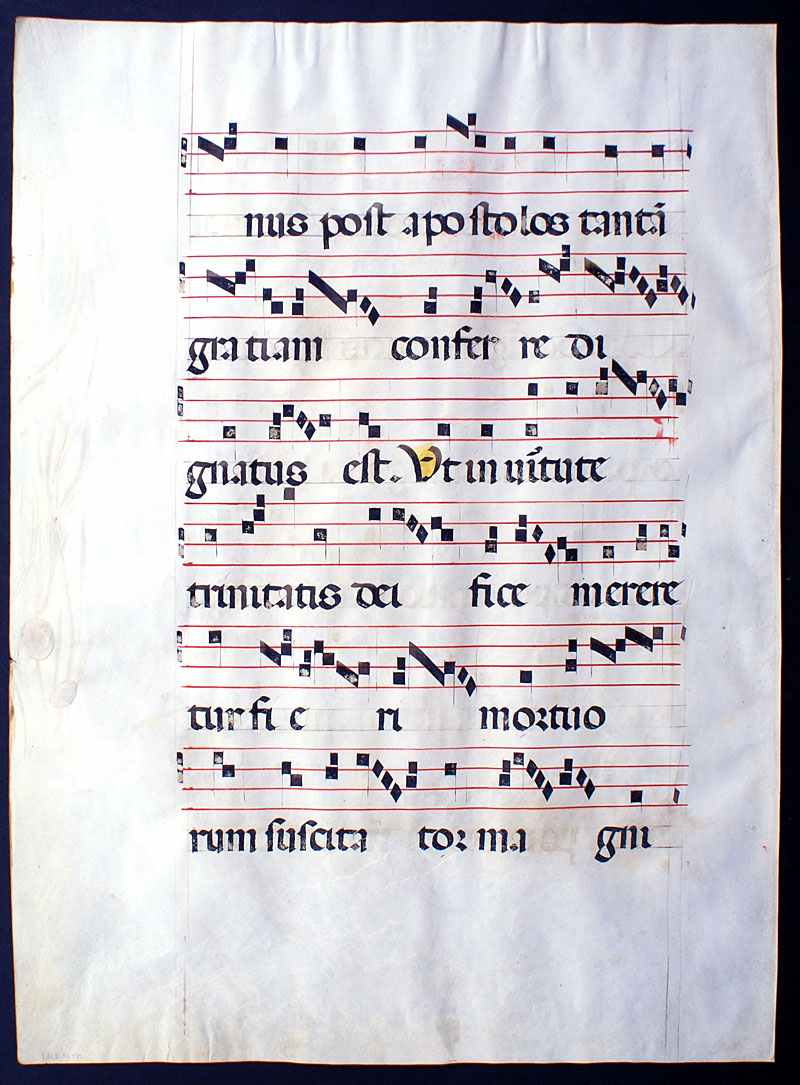 nus post apostolos tantā
gratiam confer re di
gnatus est. Ut in uĩtute
trinitatis dei fice merere
tur fi e ri mortuo
rum suscita tor ma gni